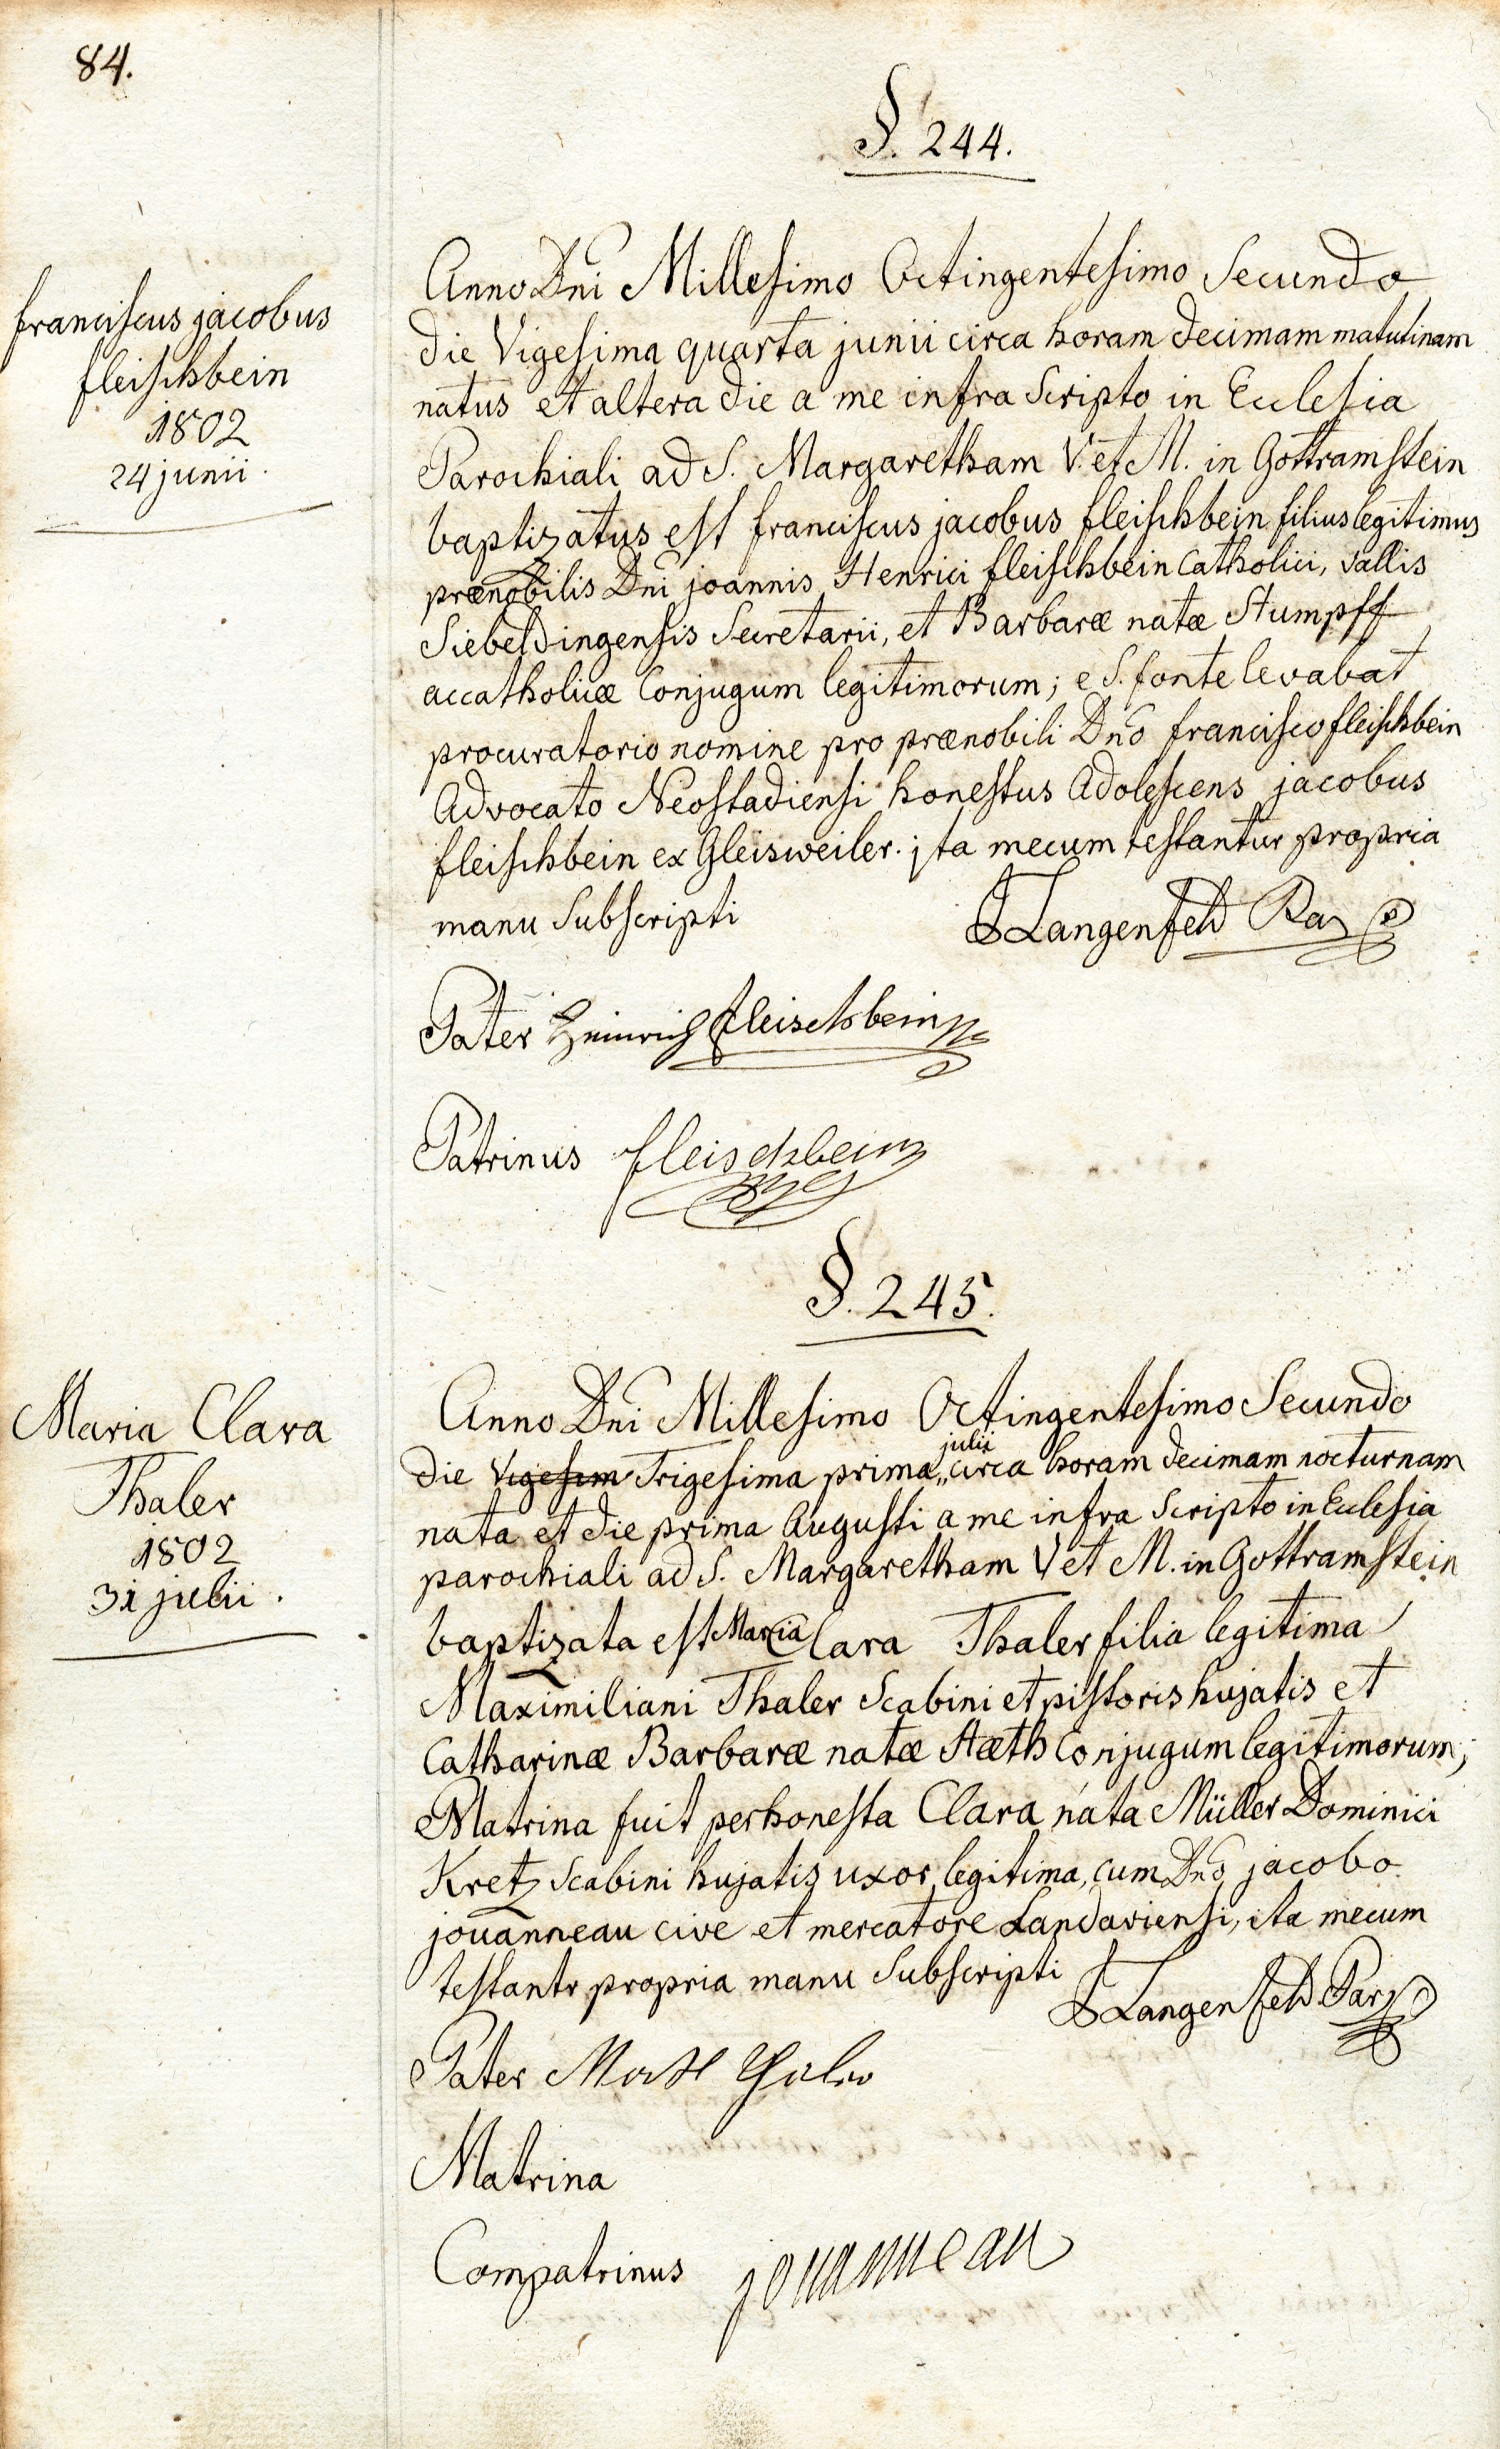 84.
§. 244.
franciscus jacobus
fleischbein
1802
24 junii.
Anno Dni Millesimo Octingentesimo Secundo
die Vigesima quarta junii circa horam decimam matutinam
natus et altera die a me infra Scripto in Ecclesia
Parochiali ad S. Margaretham V. et M. in Gottramstein
baptizatus est franciscus jacobus fleischbein filius legitimus
prænobilis Dni joannis Henrici fleischbein Catholici, vallis
Siebeldingensis Secretarii, et Barbaræ natæ Stumpff
accatholicæ Conjugum legitimorum; e S. fonte levabat
procuratorio nomine pro prænobili Dno francisco fleischbein
Advocato Neostadiensi honestus Adolescens jacobus
fleischbein ex Gleisweiler. jta mecum testantur propria
manu Subscripti
Langenfeld
Pater Heinrich fleischbein
Patrinus fleischbein
§. 245.
Maria Clara
Thaler
1802
31 julii.
Anno Dni Millesimo Octingentesimo Secundo
die Vigesim Trigesima prima julii circa horam decimam nocturnam
nata et die prima Augusti a me infra Scripto in Ecclesia
parochiali ad S. Margaretham V et M. in Gottramstein
baptizata est Maria Clara Thaler filia legitima
Maximiliani Thaler Scabini et pistoris hujatis et
Catharinæ Barbaræ natæ Stæth Conjugum legitimorum;
Matrina fuit perhonesta Clara nata Müller Dominici
Kretz Scabini hujatis uxor legitima, cum Dno jacobo
jouanneau cive et mercatore Landaviensi, ita mecum
testantr propria manu Subscripti
Langenfeld Par
Pater
Matrina
Compatrinus jouanneau